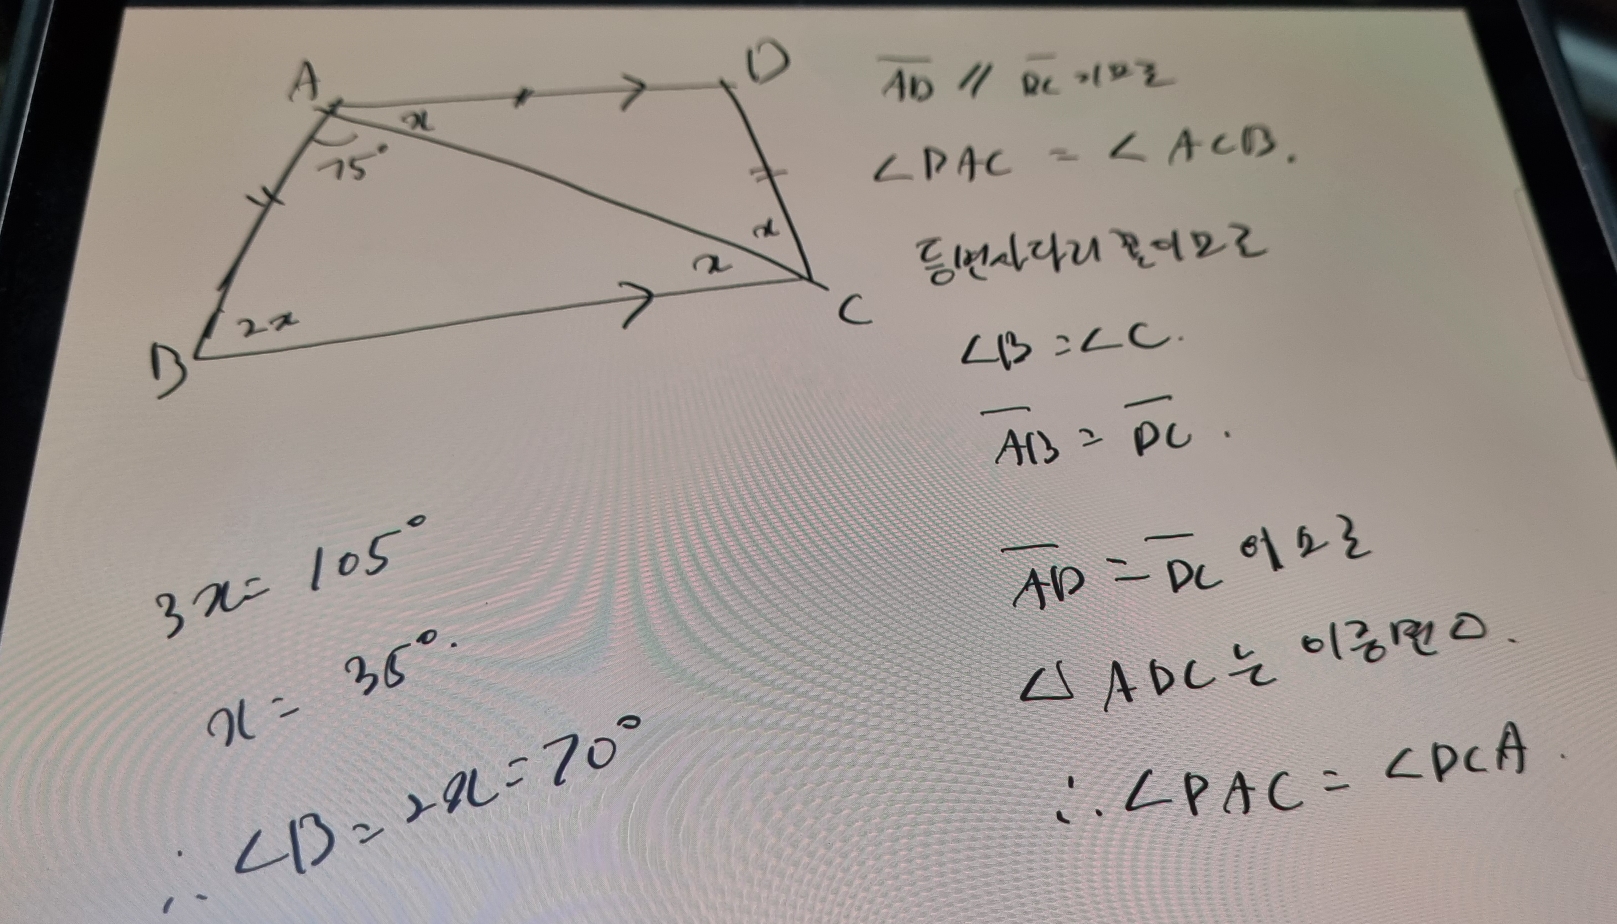 A
D
x
75°
x
x
2x
B
C
AD // DC 이므로
∠DAC = ∠ACB.
등변사다리꼴이므로
∠B = ∠C.
AB = DC.
AD = DC 이므로
△ADC는 이등변△.
∴ ∠DAC = ∠DCA.
3x = 105°
x = 35°.
∴ ∠B = 2x = 70°